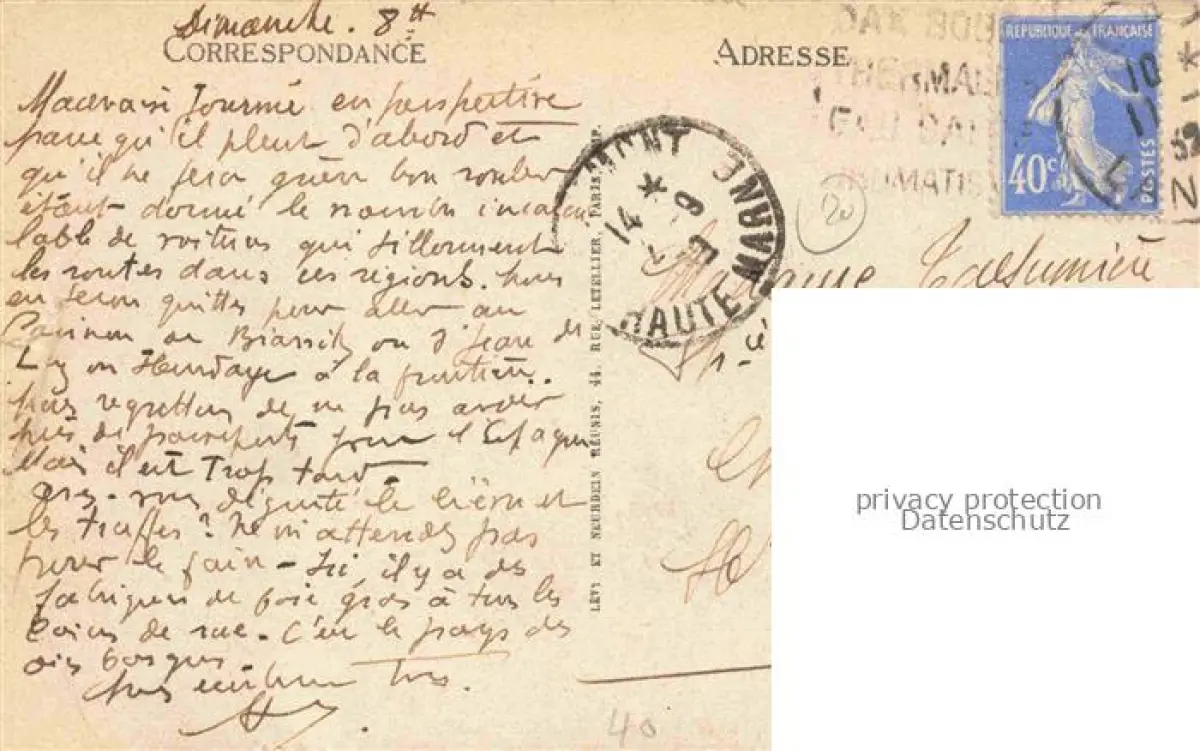 Dimanche. 8 h
CORRESPONDANCE
Mauvaise Journée en perspective
parce qu'il pleut d'abord et
qu'il ne fera guère bon rouler
étant donné le nombre incalcu
lable de voitures qui sillonnent
les routes dans ces régions. Nous
en serons quittes pour aller au
Casino de Biarritz ou St Jean de
Luz ou Hendaye à la frontière..
Nous regrettons de ne pas avoir
pris de passeports pour l'Espagne
Mais il est Trop tard.
avez-vous dégusté le lièvre et
les truffes? Ne m'attendez pas
pour le faire - Ici, il y a des
fabriques de foie gras à tous les
coins de rue. C'est le pays des
oies basques.
Vous tous.
ADRESSE
Madame
LÉVY ET NEURDEIN RÉUNIS, 44, RUE LETELLIER, PARIS IMP.
MONT
HAUTE MARNE
14 * 9
RÉPUBLIQUE FRANÇAISE
40c
POSTES
THERMAL
20
40
privacy protection
Datenschutz